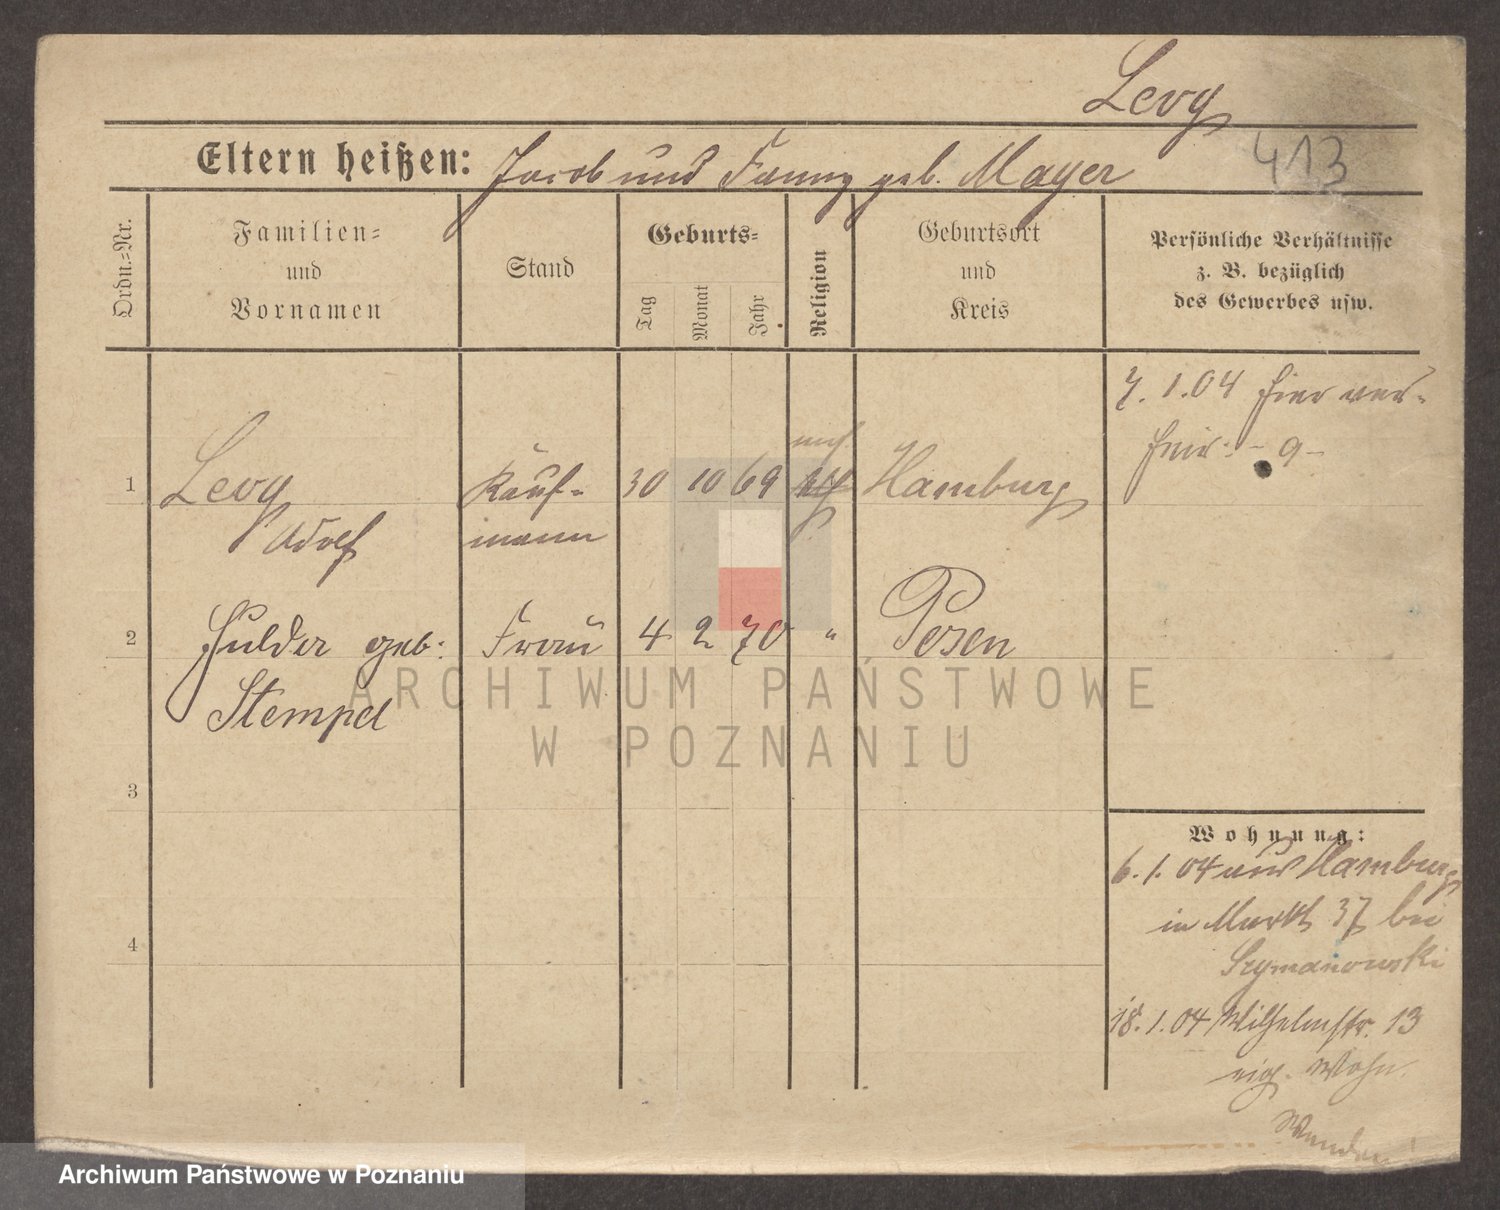 Levy
413
Eltern heißen: Jacob und Fanny geb. Mayer
Ordn.=Nr.
Familien=
und
Vornamen
Stand
Geburts=
Tag
Monat
Jahr
Religion
Geburtsort
und
Kreis
Persönliche Verhältnisse
z. B. bezüglich
des Gewerbes usw.
7. 1. 04 hier ver-
heir.
1 Levy Kauf- 30 10 69 Hamburg
Adolf mann
2 Hulda geb. Frau 4 2 70 " Posen
Stempel
3
4
Wohnung:
6. 1. 04 aus Hamburg
in Markt 37 bei
Szymanowski
18. 1. 04 Wilhelmstr. 13
eig. Wohn.
Wenden!
ARCHIWUM PAŃSTWOWE
W POZNANIU
Archiwum Państwowe w Poznaniu